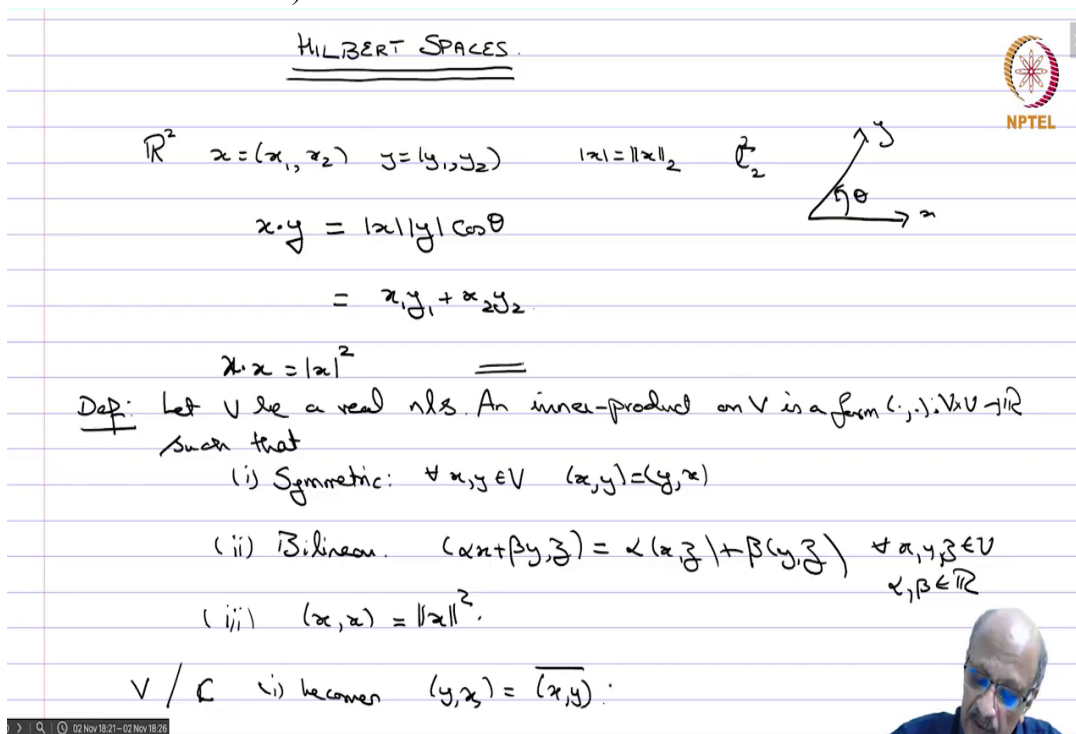 HILBERT SPACES.
NPTEL
ℝ² x=(x₁,x₂) y=(y₁,y₂) |x|=‖x‖₂ ℓ₂² y
θ x
x·y = |x||y| Cosθ
= x₁y₁+x₂y₂.
x·x = |x|²
Def: Let V be a real nls. An inner-product on V is a form (·,·):V×V→ℝ
such that
(i) Symmetric: ∀ x,y ∈V (x,y)=(y,x)
(ii) Bilinear. (αx+βy,z) = α(x,z)+β(y,z) ∀ x,y,z ∈V
α,β∈ℝ
(iii) (x,x) = ‖x‖².
V / ℂ (i) becomes (y,x) = \overline{(x,y)} :
02 Nov 18:21–02 Nov 18:26